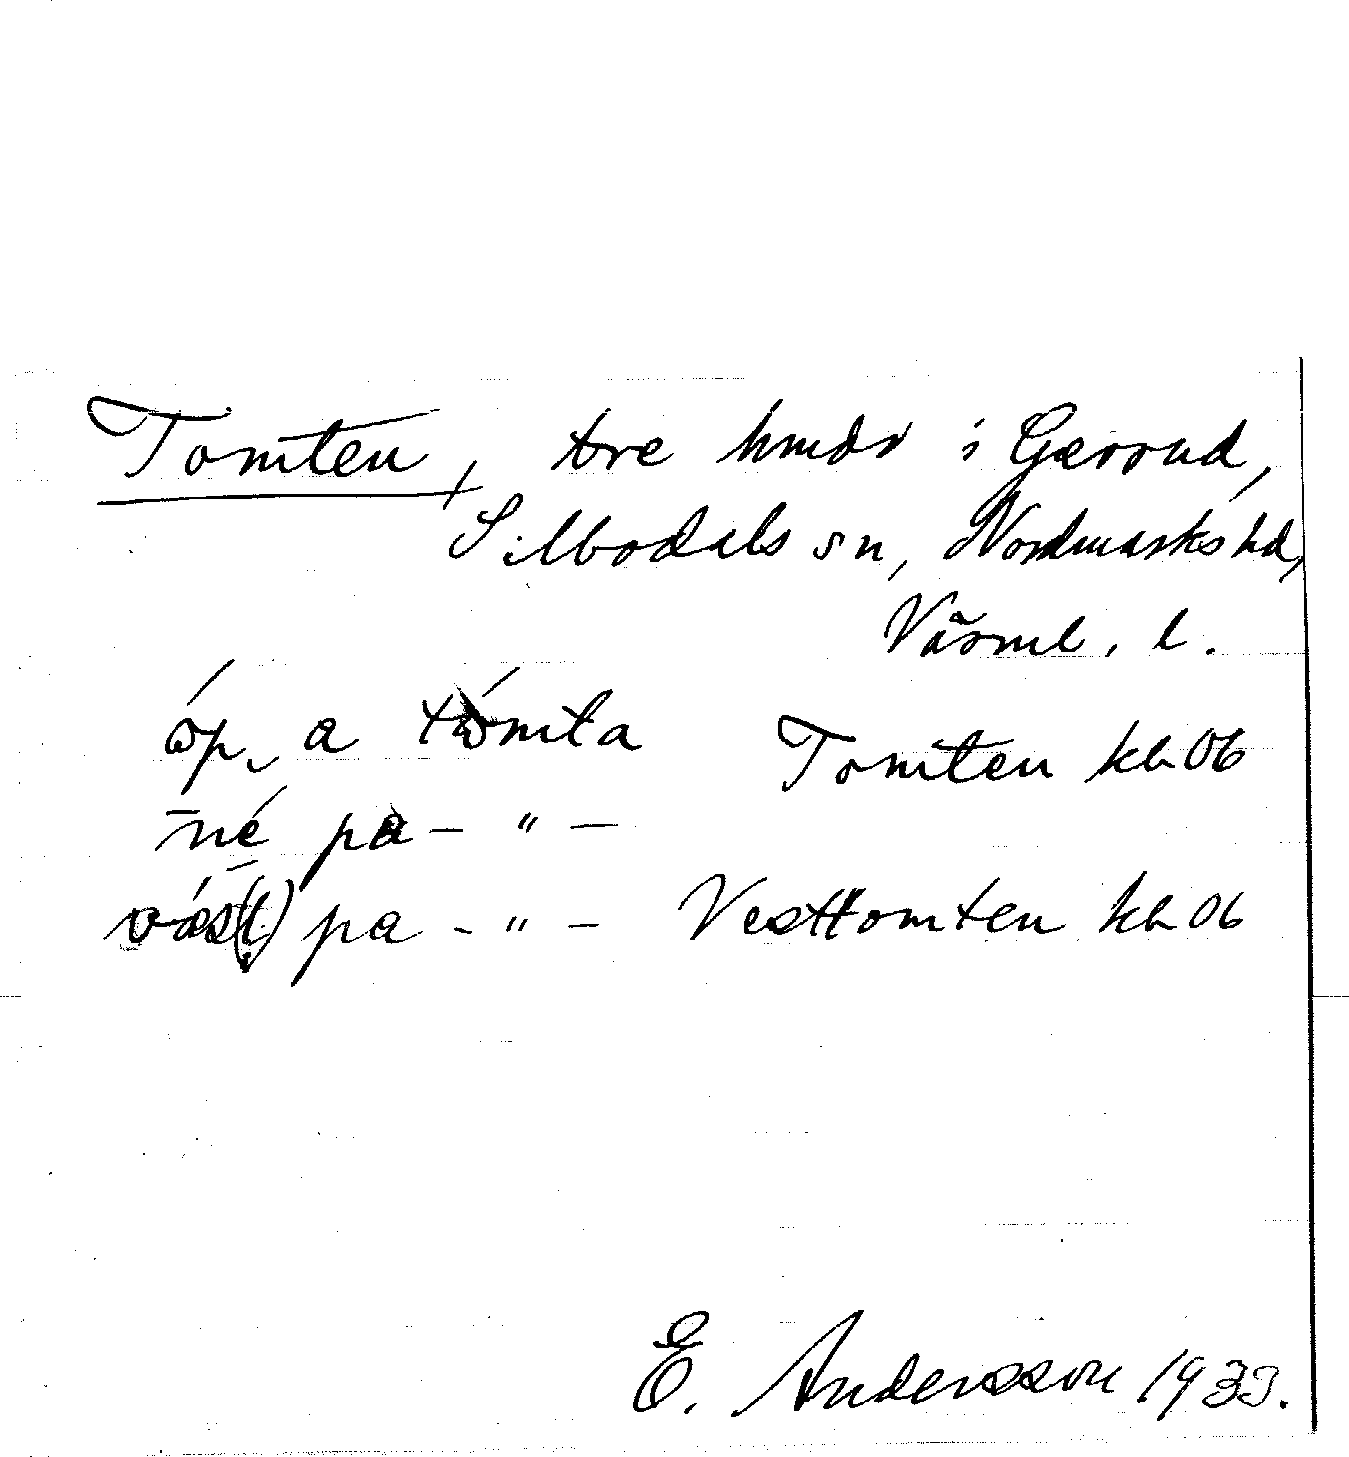 Tomten, tre hmdr i Gærrud,
Silbodals sn, Nordmarks hd,
Värml. l.
óp, a tómta Tomten kb 06
né pa - " -
väs(t) pa - " - Vesttomten kb 06
E. Andersson 1933.